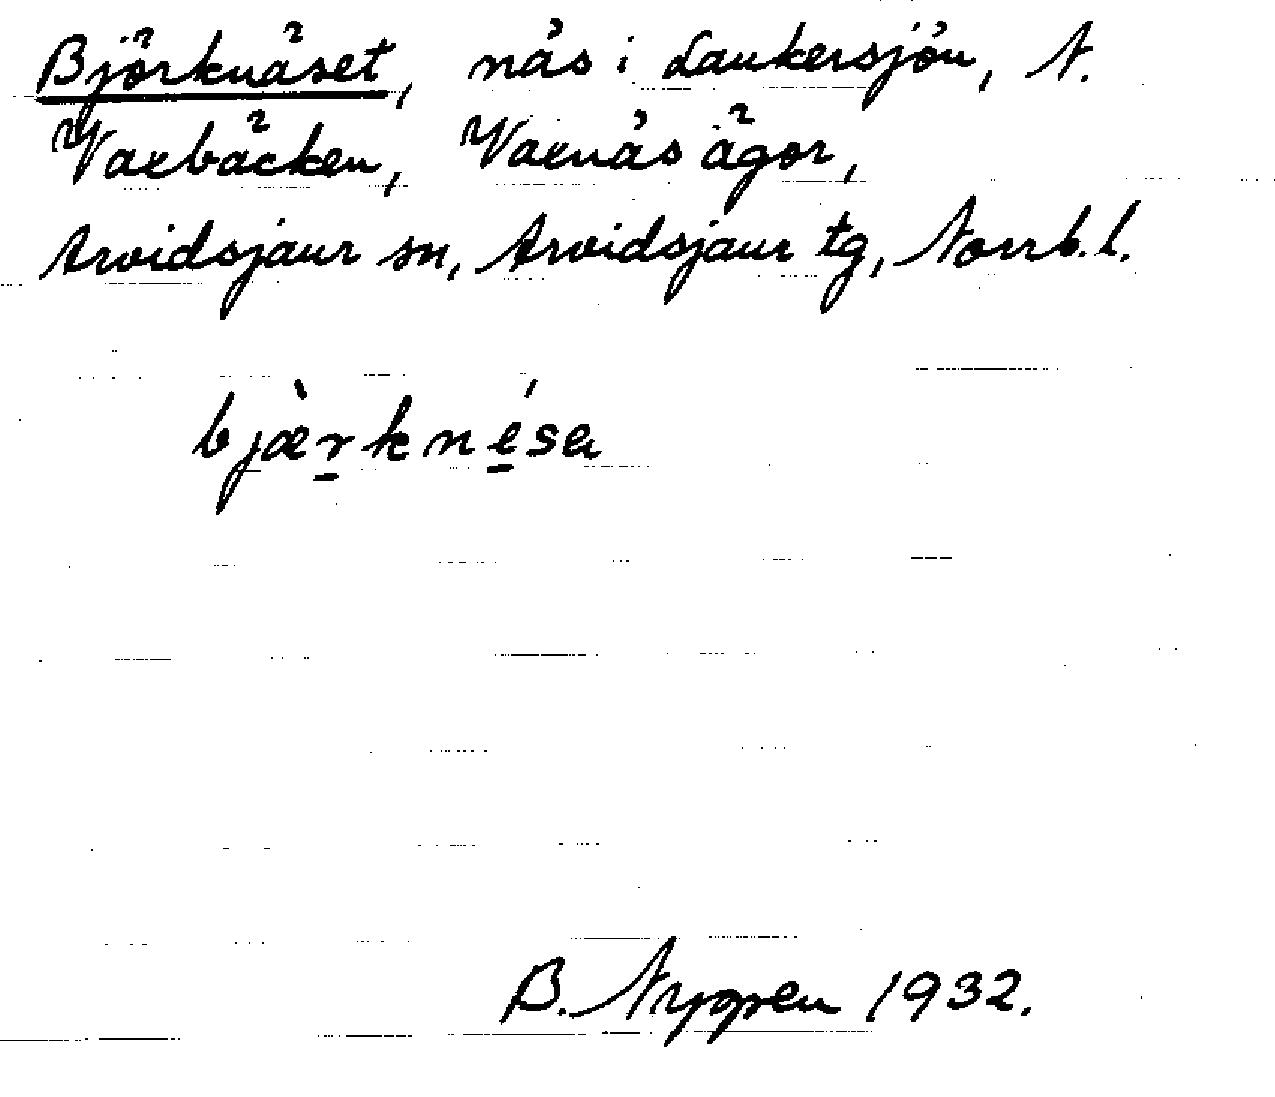 Björknäset, näs i Laukersjön, N.
Varbäcken, Varnäs ägor,
Arvidsjaur sn, Arvidsjaur tg, Norrb. l.
bjæ̀rknésa
B. Nyppen 1932.